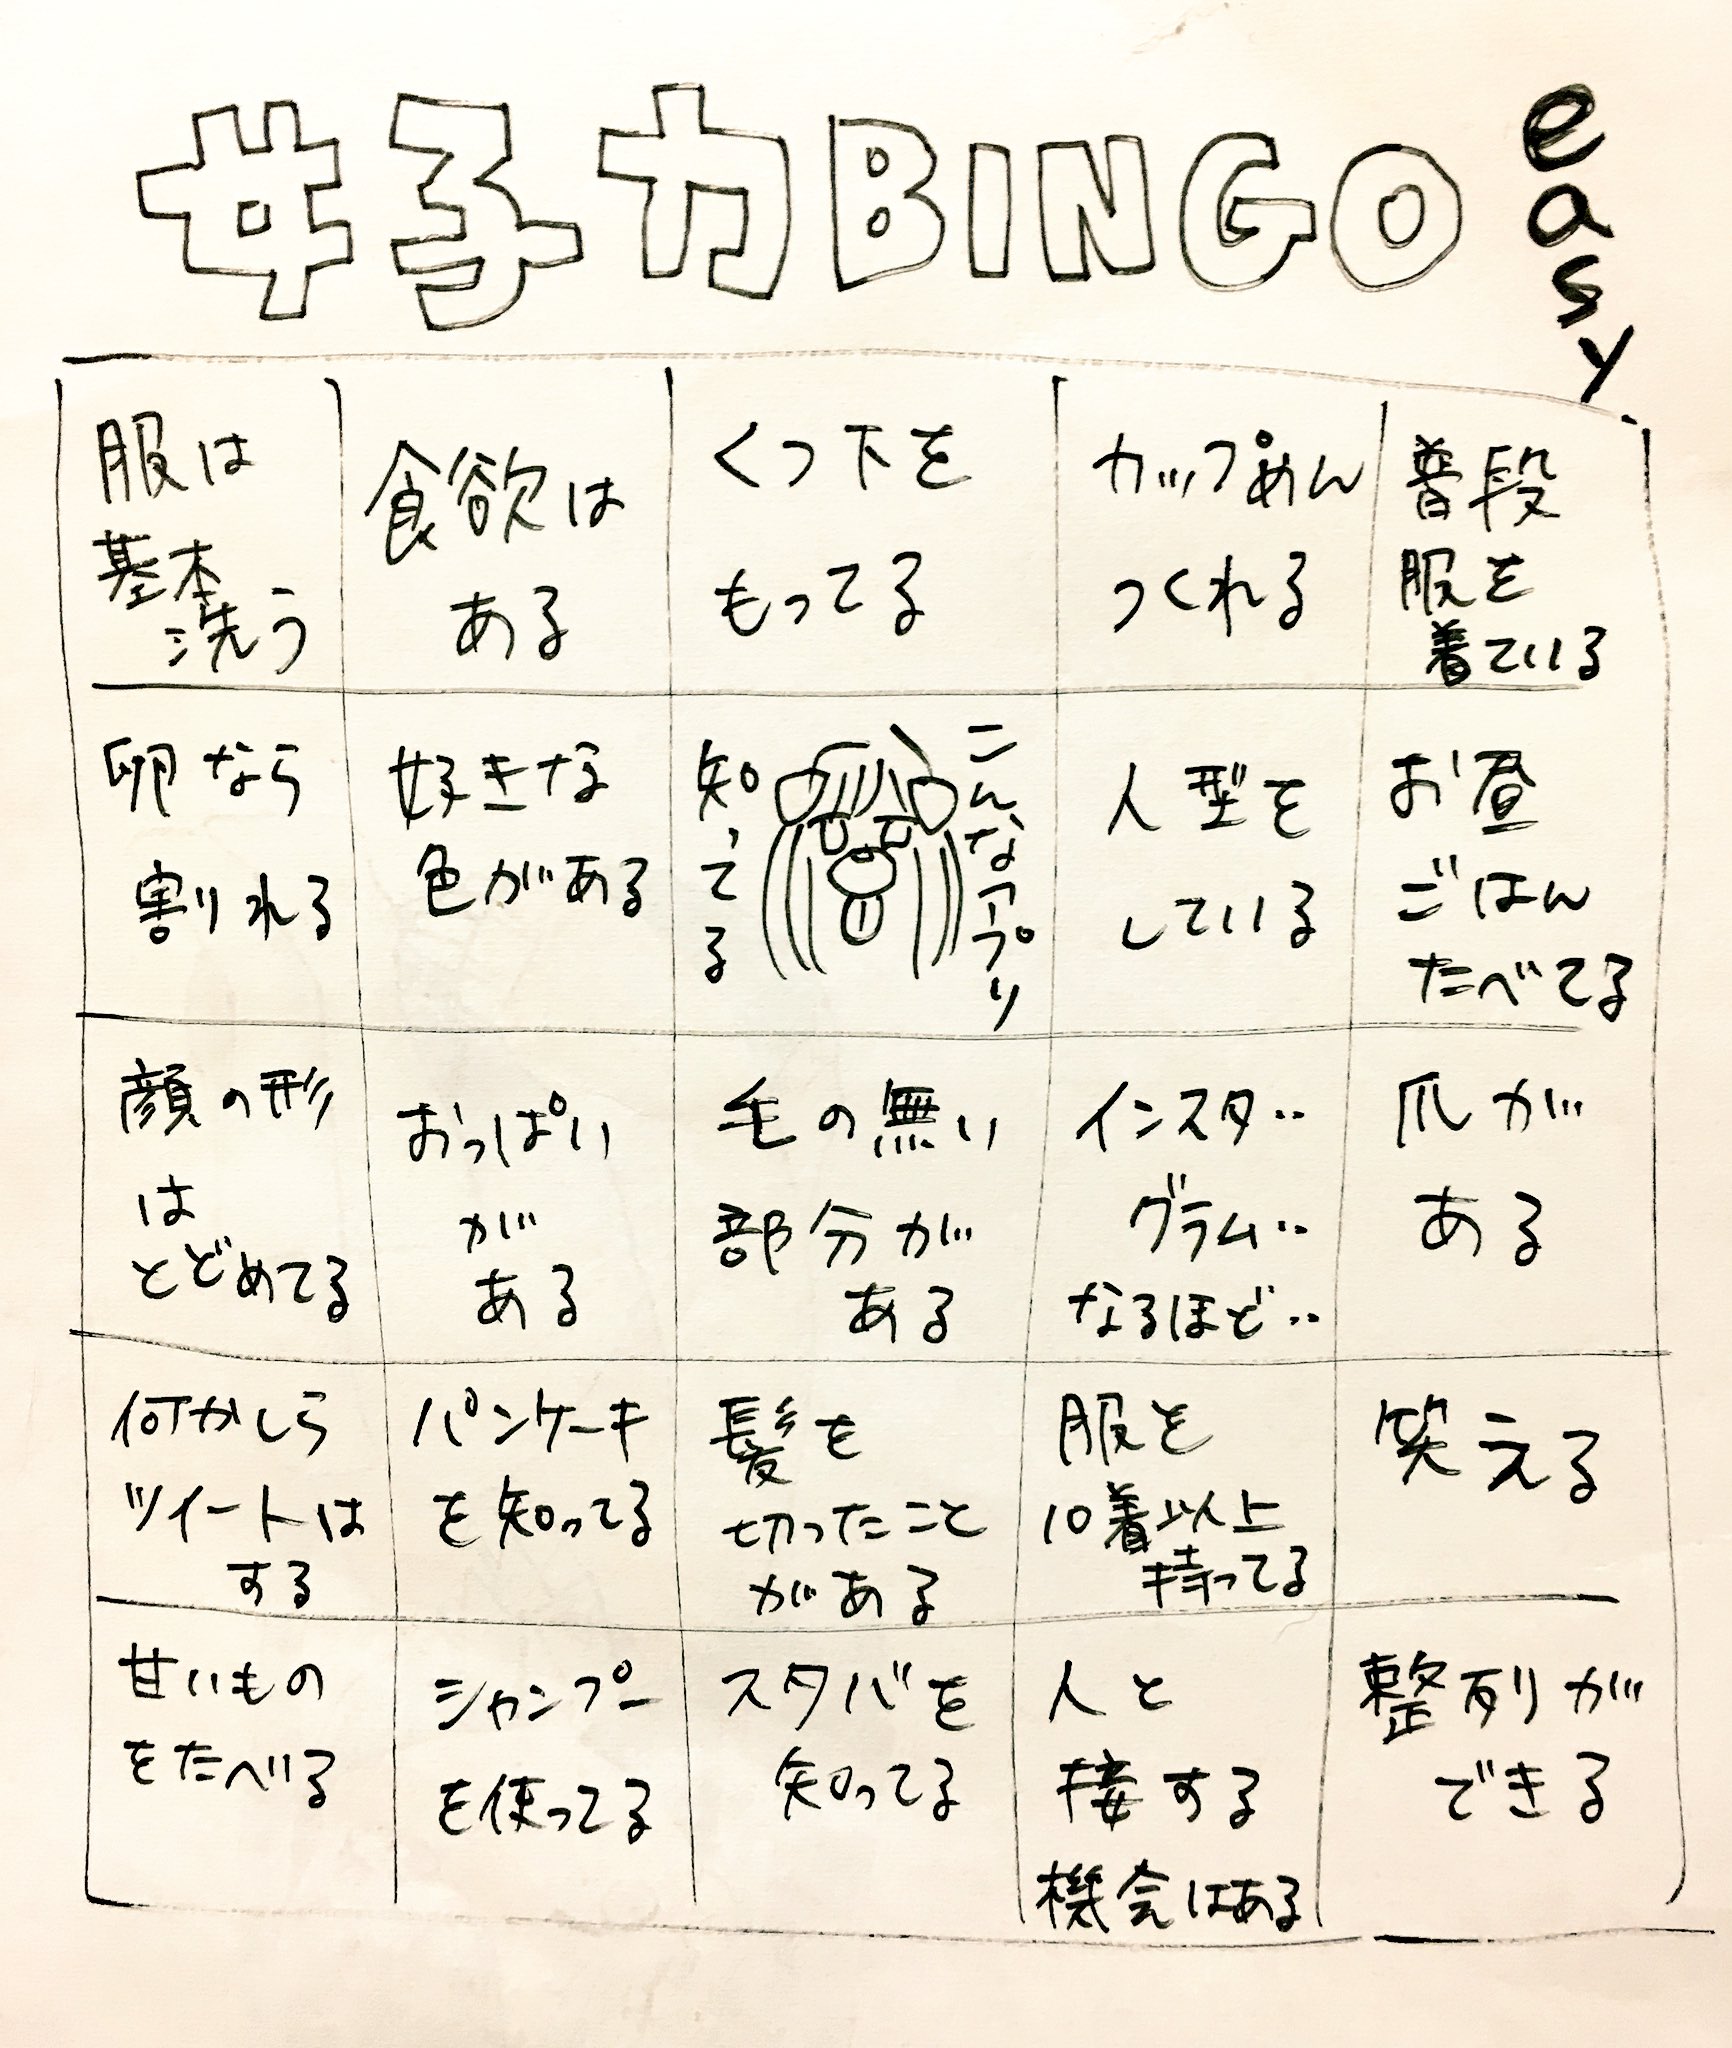 女子力BINGO
easy.
服は
基本
洗う
食欲は
ある
くつ下を
もってる
カップめん
つくれる
普段
服を
着ている
卵なら
割れる
好きな
色がある
こんなアプリ
知ってる
人型を
している
お昼
ごはん
たべてる
顔の形
は
とどめてる
おっぱい
が
ある
毛の無い
部分が
ある
インスタ‥
グラム‥
なるほど‥
爪が
ある
何かしら
ツイートは
する
パンケーキ
を知ってる
髪を
切ったこと
がある
服を
10着以上
持ってる
笑える
甘いもの
をたべる
シャンプー
を使ってる
スタバを
知ってる
人と
接する
機会はある
整列が
できる